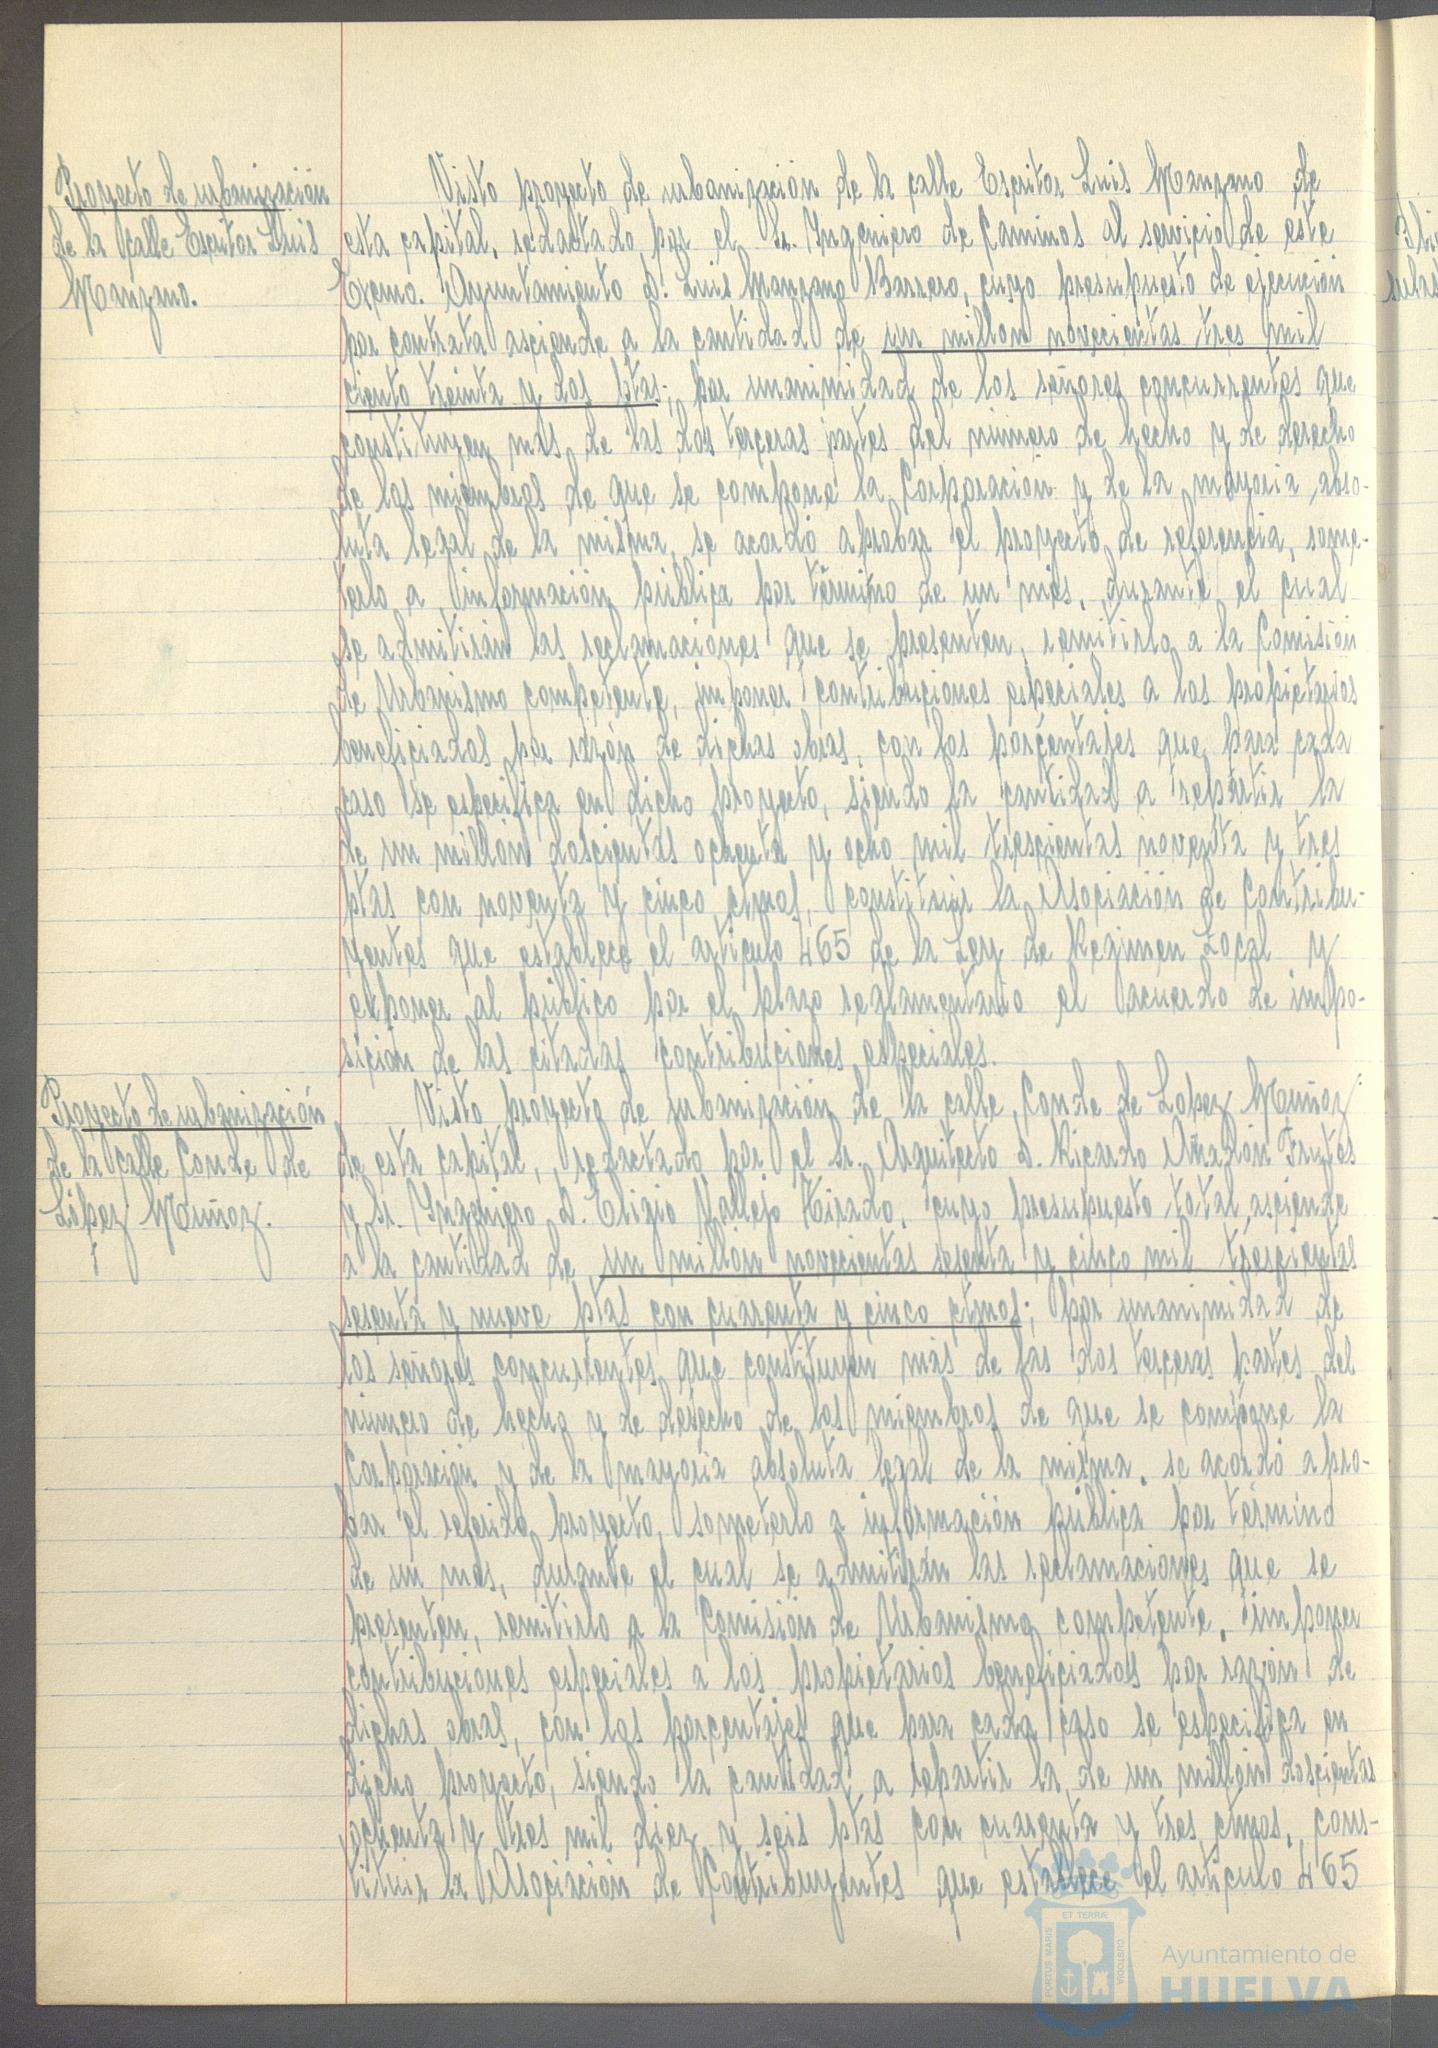 Proyecto de urbanización
de la calle Escritor Luis
Manzano.
Visto proyecto de urbanización de la calle Escritor Luis Manzano de
esta capital, redactado por el Sr. Yngeniero de Caminos al servicio de este
Excmo. Ayuntamiento D. Luis Manzano Barrero, cuyo presupuesto de ejecución
por contrata asciende a la cantidad de un millon novecientas tres mil
ciento treinta y dos ptas; por unanimidad de los señores concurrentes que
constituyen más de las dos terceras partes del número de hecho y de derecho
de los miembros de que se compone la Corporación y de la mayoria abso-
luta legal de la misma, se acordó aprobar el proyecto de referencia, some-
terlo a información pública por término de un mes, durante el cual
se admitirán las reclamaciones que se presenten, remitirlo a la Comisión
de Urbanismo competente, imponer contribuciones especiales a los propietarios
beneficiados por razón de dichas obras, con los porcentajes que para cada
caso se especifica en dicho proyecto, siendo la cantidad a repartir la
de un millón doscientas ochenta y ocho mil trescientas noventa y tres
ptas con noventa y cinco ctmos, constituir la Asociación de Contribu-
yentes que establece el articulo 465 de la Ley de Regimen Local y
exponer al público por el plazo reglamentario el acuerdo de impo-
sición de las citadas contribuciones especiales.
Proyecto de urbanización
de la calle Conde de
López Muñoz.
Visto proyecto de urbanización de la calle Conde de Lopez Muñoz
de esta capital, redactado por el Sr. Arquitecto D. Ricardo Anadón Frutos
y Sr. Yngeniero D. Eligio Vallejo Tirado, cuyo presupuesto total asciende
a la cantidad de un millón novecientas sesenta y cinco mil trescientas
sesenta y nueve ptas con cuarenta y cinco ctmos; por unanimidad de
los señores concurrentes que constituyen más de las dos terceras partes del
número de hecho y de derecho de los miembros de que se compone la
Corporación y de la mayoria absoluta legal de la misma, se acordó apro-
bar el referido proyecto, someterlo a información pública por término
de un mes, durante el cual se admitirán las reclamaciones que se
presenten, remitirlo a la Comisión de Urbanismo competente, imponer
contribuciones especiales a los propietarios beneficiados por razón de
dichas obras, con los porcentajes que para cada caso se especifica en
dicho proyecto, siendo la cantidad a repartir la de un millón doscientas
ochenta y tres mil diez y seis ptas con cuarenta y tres ctmos, cons-
tituir la Asociación de Contribuyentes que establece el articulo 465
PORTUS MARIS
ET TERRÆ
CUSTODIA
Ayuntamiento de
HUELVA